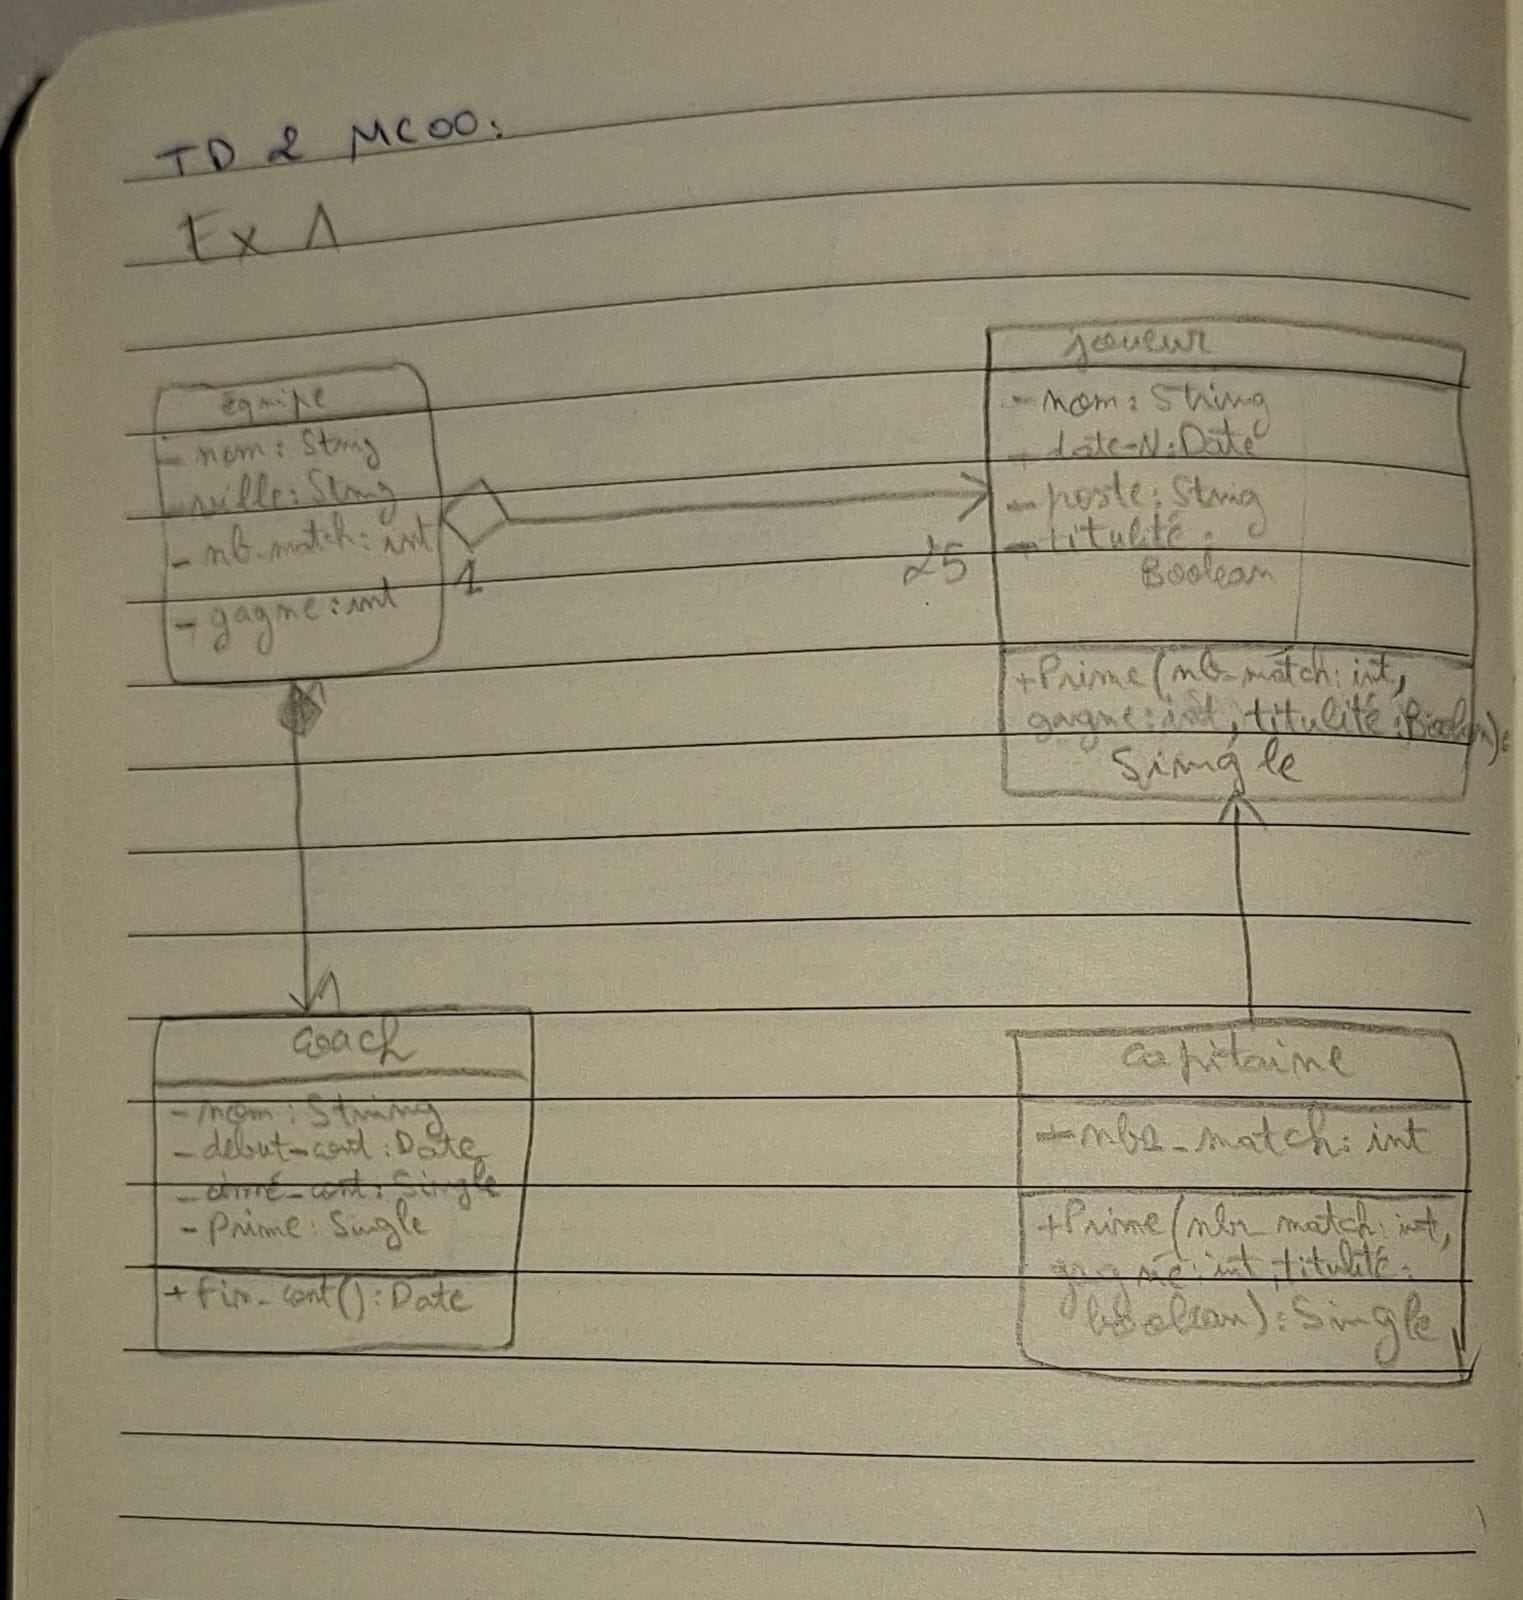 TD 2 MCOO:
Ex 1
équipe
- nom: String
- ville: String
- nb-match: int
- gagne: int
1
25
joueur
- nom: String
- date-N: Date
- poste: String
- titulité:
Boolean
+ Prime (nb-match: int,
gagne: int, titulité: Boolean):
Single
1
1
coach
- nom: String
- debut-cont: Date
- cont: Single
- Prime: Single
+ fin-cont(): Date
capitaine
- nbr-match: int
+ Prime (nbr-match: int,
gagné: int, titulité:
boolean): Single